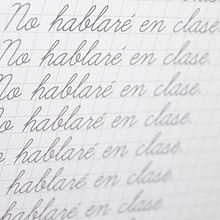 No hablaré en clase.
No hablaré en clase.
No hablaré en clase.
No hablaré en clase.
hablaré en clase.
hablaré en clase.
hablaré en clase.